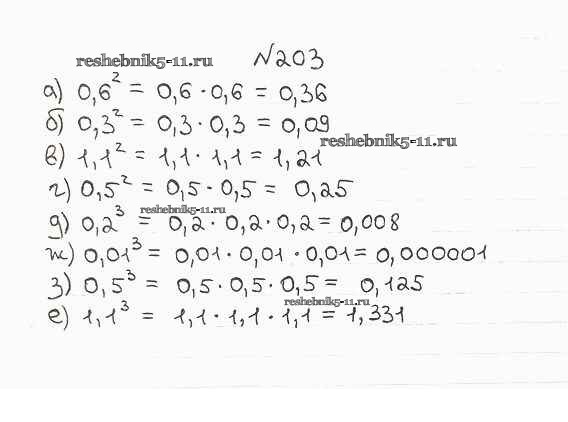 reshebnik5-11.ru №203
а) 0,6² = 0,6 · 0,6 = 0,36
б) 0,3² = 0,3 · 0,3 = 0,09
reshebnik5-11.ru
в) 1,1² = 1,1 · 1,1 = 1,21
г) 0,5² = 0,5 · 0,5 = 0,25
reshebnik5-11.ru
д) 0,2³ = 0,2 · 0,2 · 0,2 = 0,008
ж) 0,01³ = 0,01 · 0,01 · 0,01 = 0,000001
з) 0,5³ = 0,5 · 0,5 · 0,5 = 0,125
reshebnik5-11.ru
е) 1,1³ = 1,1 · 1,1 · 1,1 = 1,331